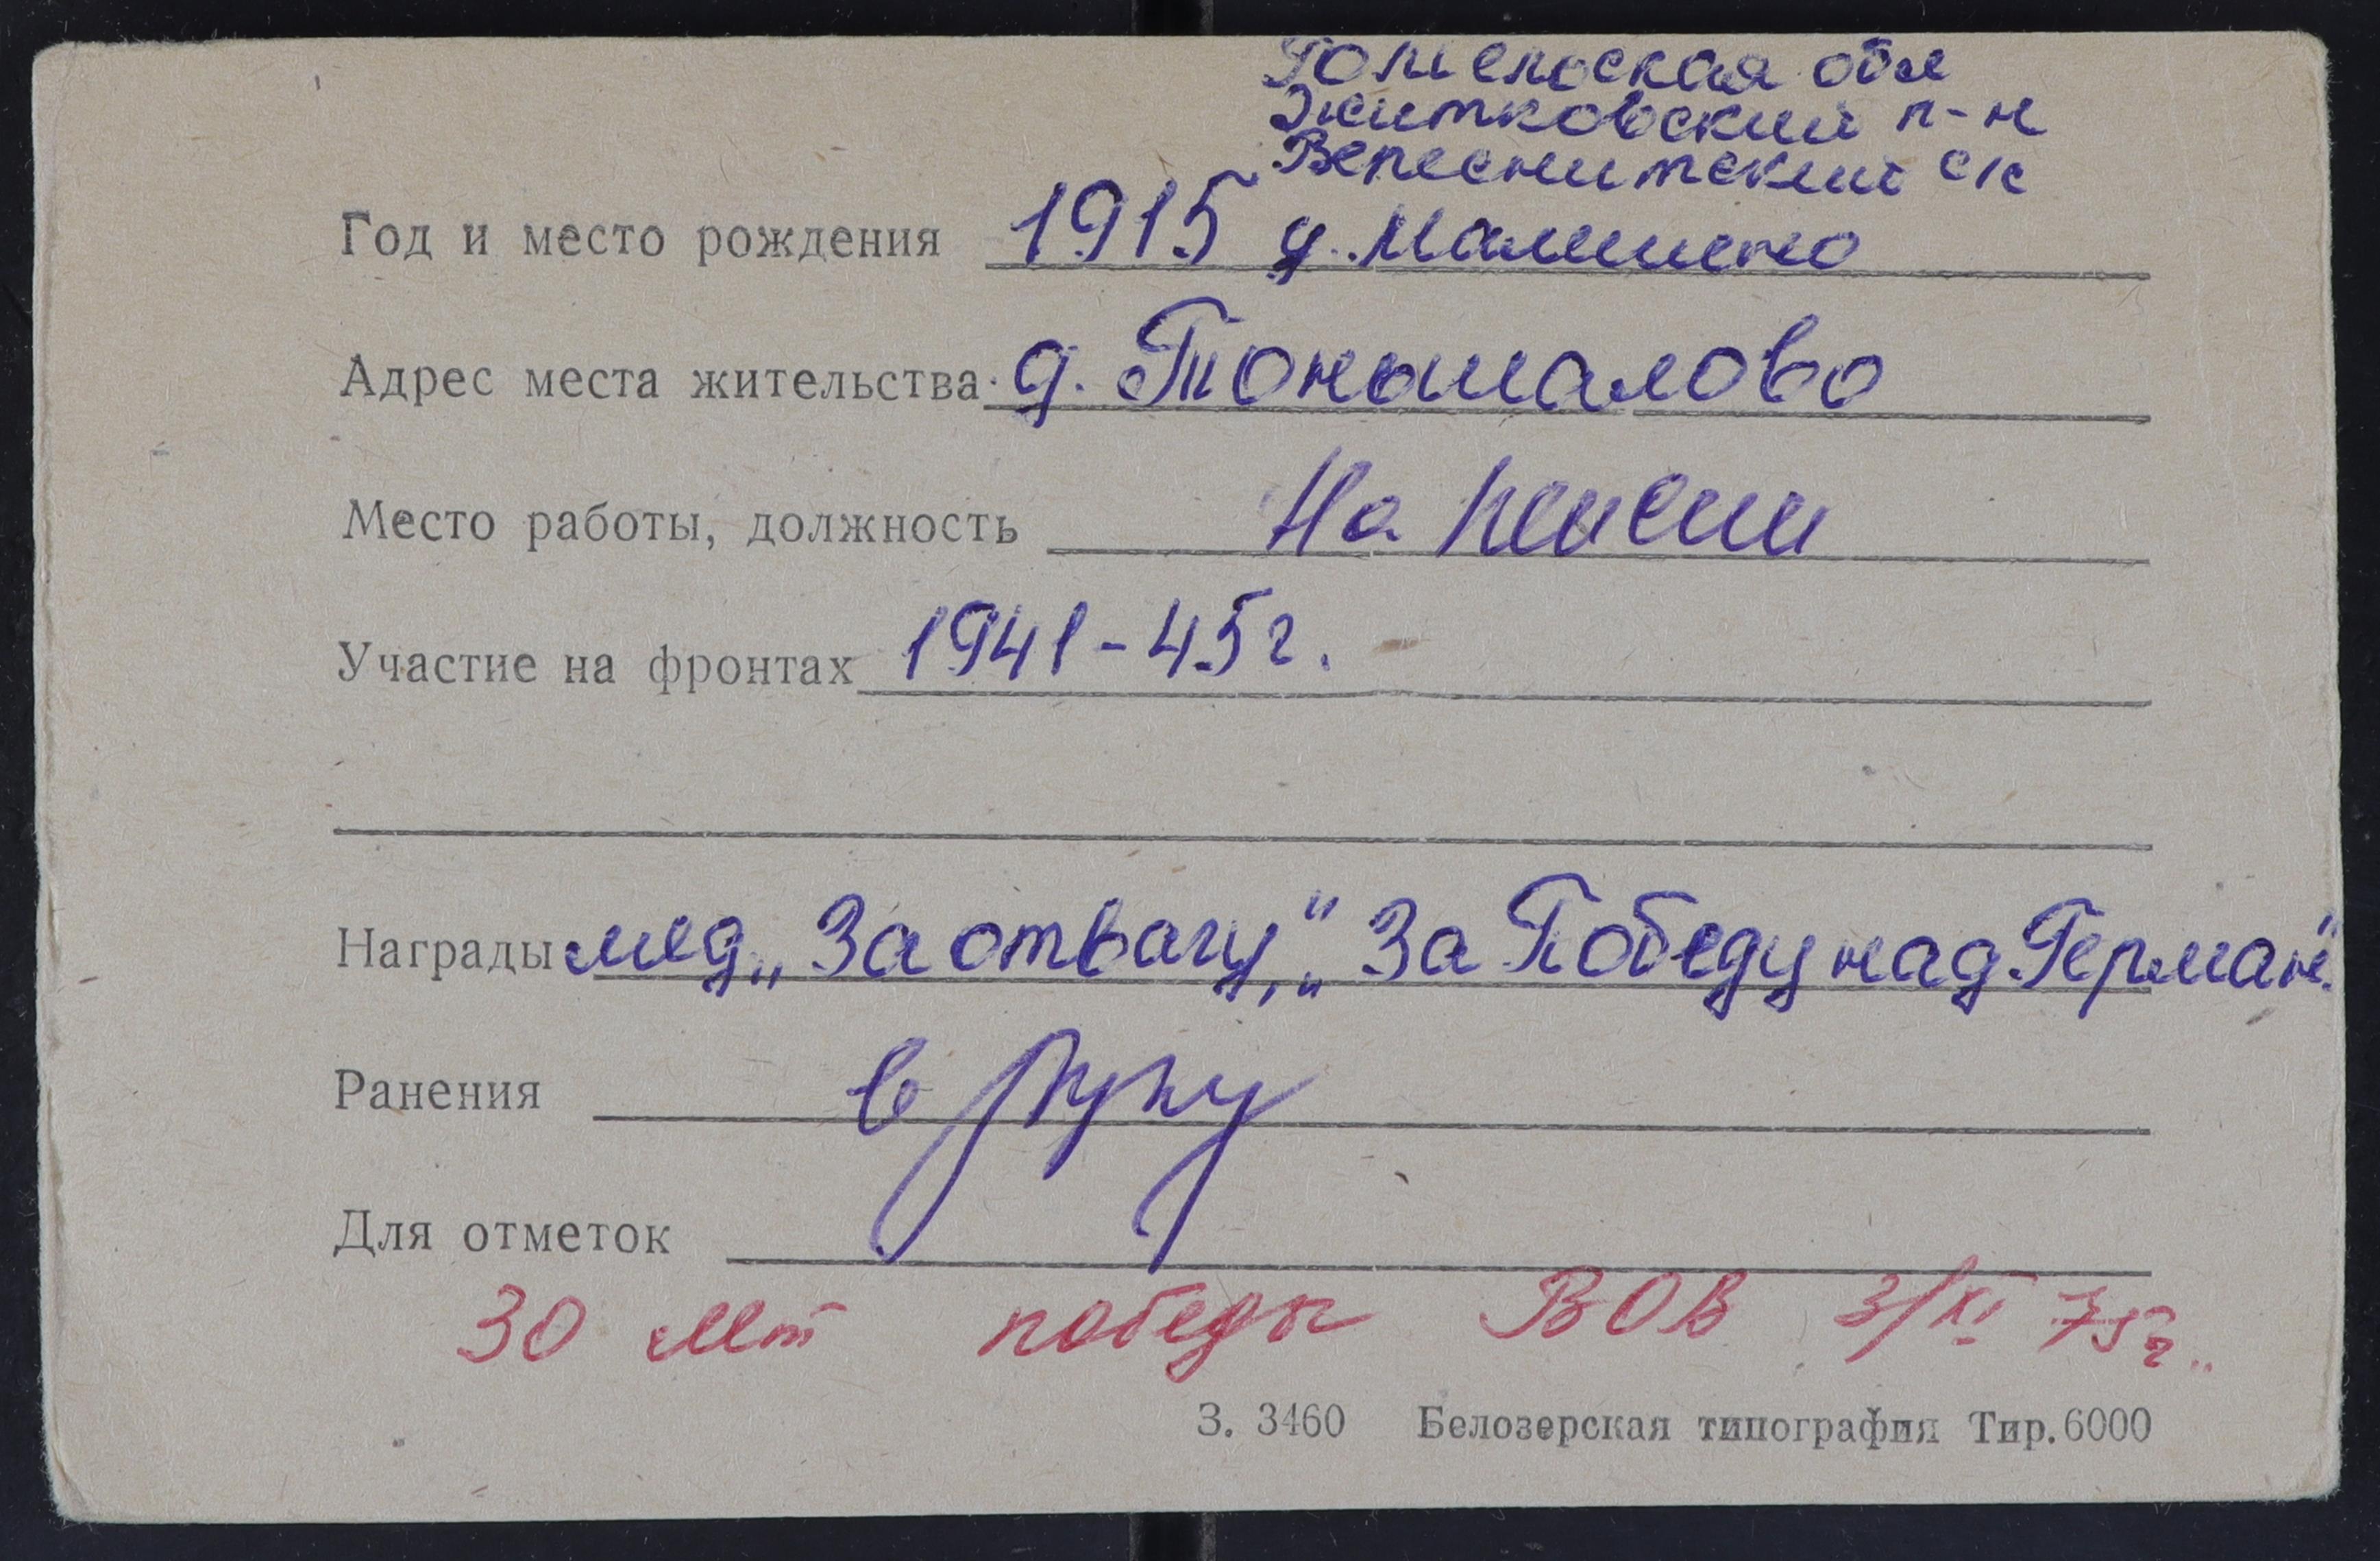 Гомельская обл
Житковский р-н
Вереснитский с/с
Год и место рождения 1915 д. Малешено
Адрес места жительства д. Тоншалово
Место работы, должность На пенсии
Участие на фронтах 1941-45г.
Награды мед „За отвагу", „За Победу над Герман."
Ранения в руку
Для отметок
30 лет победы ВОВ 3/XI 75г.
З. 3460 Белозерская типография Тир. 6000